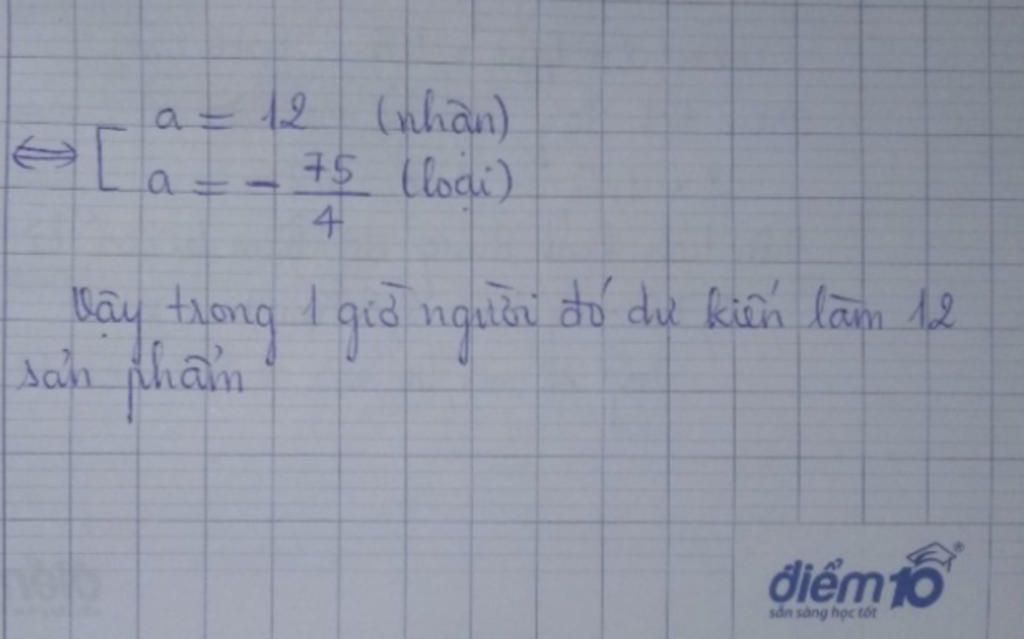 ⇔ [ a = 12 (nhận)
a = - 75/4 (loại)
Vậy trong 1 giờ người đó dự kiến làm 12
sản phẩm
điểm10
sẵn sàng học tốt